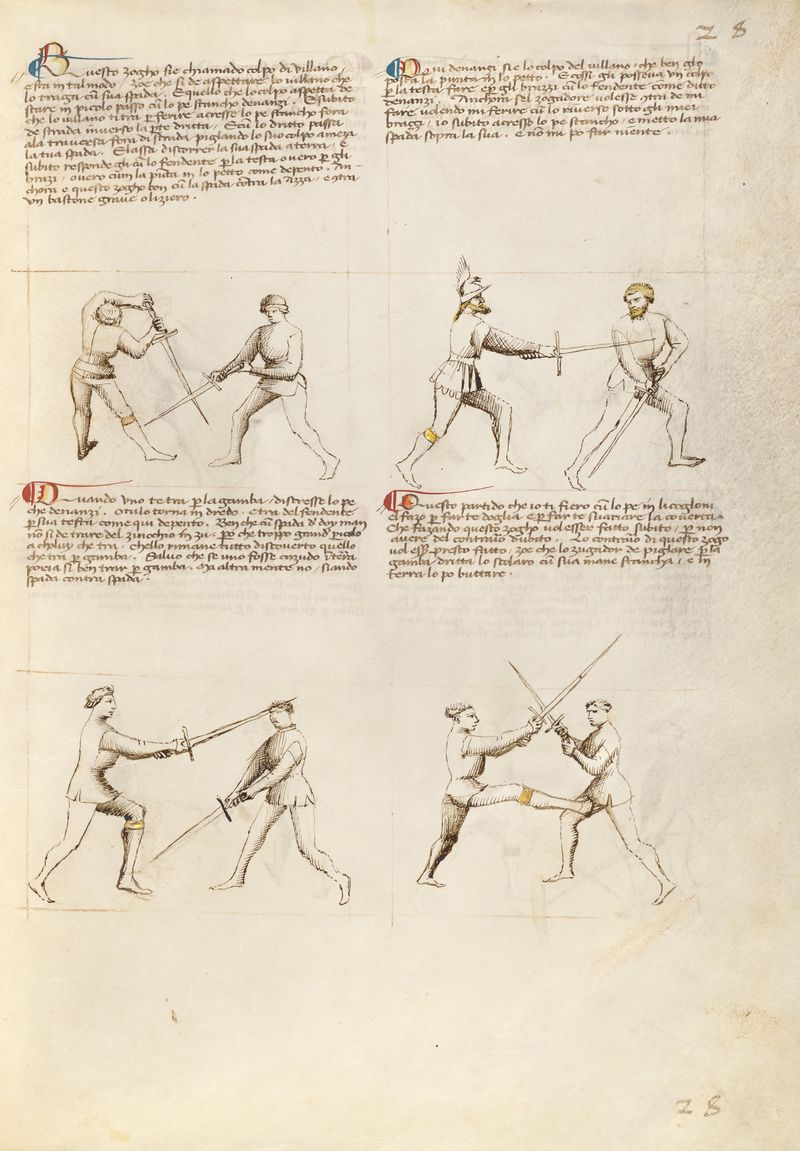 28
Questo zogho sie chiamado colpo di villano /
e sta in tal modo / Zoe che si de aspettare lo villano che
lo traga cū sua spada. E quello che lo colpo aspetta de
stare in picolo passo cū lo pe stancho denanzi. E subito
che lo villano ti tra p ferire acresse lo pe stancho fora
de strada inverso la pte dritta / E cū lo dritto passa
ala traversa fora di strada piglando lo suo colpo a meza
la tua spada. E lassa discorrer la sua spada a terra / e
subito responde gli cū lo fendente p la testa overo p gli
brazi / overo cum la pūta in lo petto come depento. An-
chora e questo zogho bon cū la spada cōtra la Azza / ɔtra
un bastone grave o liziero.
Qui denanzi sie lo colpo del villano / che ben glo
posta la punta in lo petto. E cossi gli posseva un colpo
p la testa fare e p gli brazzi cū lo fendente come ditto
denanzi. Anchora sel zogadore volesse ɔtra de mi
fare volendo mi ferire cū lo riverso sotto gli miei
brazzi / io subito acresso lo pe stancho / e metto la mia
spada sopra la sua. E nō mi po far niente.
Quando uno te tra p la gamba / discresse lo pe
che denanzi. o tu lo torna in dredo. e tra del fendente
p sua testa come qui depento. Ben che cū spada d doy man
nō si de trare del zinochio in zu. po che troppo grand picolo
a chluy che tra. Chello rimane tutto discoverto quello
che tra p gamba. Salvo che se uno fosse cazudo ī tera
poria si ben trar p gamba. Ma altra mente no / siando
spada contra spada.
Questo partido che io ti fiero cū lo pe in li coglioni
el fazo p far te doglia e p far te svariare la coverta.
Che fazando questo zogho vol esser fatto subito / p non
avere del contrario dubito. Lo contrario di questo zogo
vol essr presto fatto / zoe che lo zugador de piglare p la
gamba dritta lo scolaro cū sua mane stancha / e in
terra lo po buttare.
28